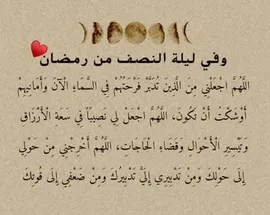 وفي ليلة النصف من رمضان
اللَّهُمَّ اجْعَلْنِي مِنَ الَّذِينَ تُدَبَّرُ فَرْحَتُهُمْ فِي السَّمَاءِ الْآنَ وَأَمَانِيهِمْ
أَوْشَكَتْ أَنْ تَكُونَ، اللَّهُمَّ اجْعَلْ لِي نَصِيبًا فِي سَعَةِ الْأَرْزَاقِ
وَتَيْسِيرِ الْأَحْوَالِ وَقَضَاءِ الْحَاجَاتِ، اللَّهُمَّ أَخْرِجْنِي مِنْ حَوْلِي
إِلَى حَوْلِكَ وَمِنْ تَدْبِيرِي إِلَى تَدْبِيرِكَ وَمِنْ ضَعْفِي إِلَى قُوَّتِكَ